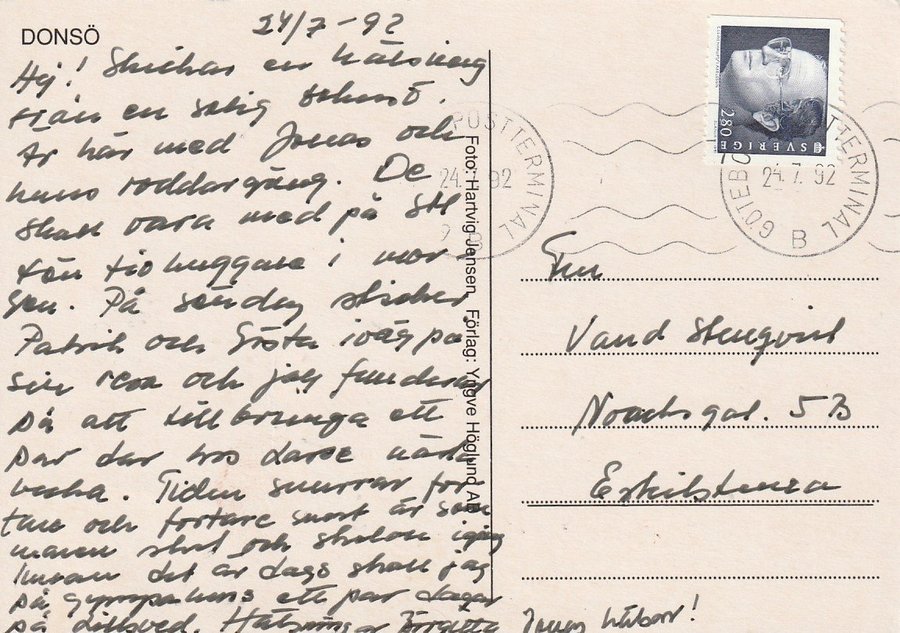 DONSÖ
24/7-92
Hej! Skickar en hälsning
från en solig
Är här med Jonas och
hans roddargäng. De
skall vara med på
i mor
gen. På söndag sticker
Patrik och Gösta iväg på
sin resa och jag funderar
på att tillbringa ett
par dar hos nästa
vecka. Tiden snurrar for
tare och fortare snart är som
maren slut och skolan igång
Innan det är dags skall jag
på gympakurs ett par dagar
på Lillsved. Hälsningar Birgitta Jonas hälsar!
Foto: Hartvig Jensen, Förlag: Yngve Höglund AB
POSTTERMINAL
24.7.92
SVERIGE
2.80
GÖTEBORG POSTTERMINAL
24.7.92
B
Fru
Vand Stenqvist
5B
Eskilstuna